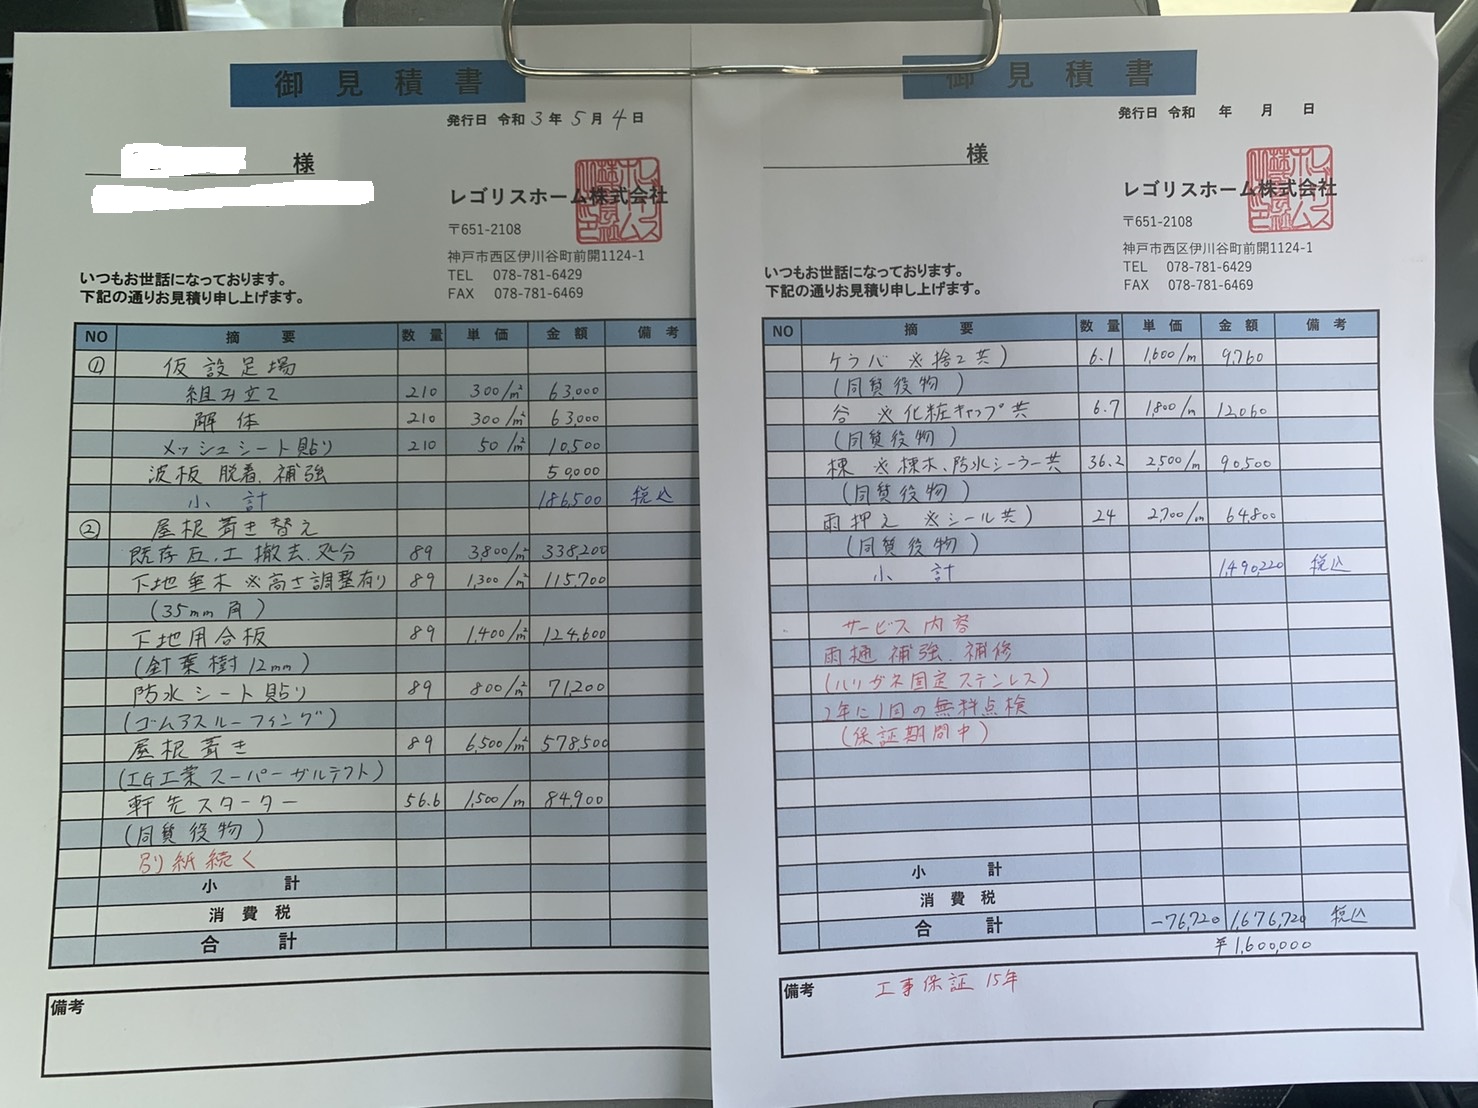 御見積書
発行日 令和 3年 5月 4日
様
レゴリスホーム株式会社
〒651-2108
神戸市西区伊川谷町前開1124-1
TEL 078-781-6429
FAX 078-781-6469
いつもお世話になっております。
下記の通りお見積り申し上げます。
NO 摘要 数量 単価 金額 備考
① 仮設足場
組み立て 210 300/㎡ 63,000
解体 210 300/㎡ 63,000
メッシュシート貼り 210 50/㎡ 10,500
波板脱着、補強 50,000
小計 186,500 税込
② 屋根葺き替え
既存瓦、土撤去、処分 89 3,800/㎡ 338,200
下地垂木 ※高さ調整有り 89 1,300/㎡ 115,700
(35mm角)
下地用合板 89 1,400/㎡ 124,600
(針葉樹12mm)
防水シート貼り 89 800/㎡ 71,200
(ゴムアスルーフィング)
屋根葺き 89 6,500/㎡ 578,500
(IG工業スーパーガルテクト)
軒先スターター 56.6 1,500/m 84,900
(同質役物)
別紙続く
小計
消費税
合計
備考
御見積書
発行日 令和 年 月 日
様
レゴリスホーム株式会社
〒651-2108
神戸市西区伊川谷町前開1124-1
TEL 078-781-6429
FAX 078-781-6469
いつもお世話になっております。
下記の通りお見積り申し上げます。
NO 摘要 数量 単価 金額 備考
ケラバ ※捨て共) 6.1 1,600/m 9,760
(同質役物)
谷 ※化粧キャップ共 6.7 1,800/m 12,060
(同質役物)
棟 ※棟木、防水シーラー共 36.2 2,500/m 90,500
(同質役物)
雨押え ※シール共) 24 2,700/m 64,800
(同質役物)
小計 1,490,220 税込
サービス内容
雨樋補強、補修
(ハリガネ固定ステンレス)
2年に1回の無料点検
(保証期間中)
小計
消費税
合計 -76,720 1,676,720 税込
¥1,600,000
備考 工事保証 15年